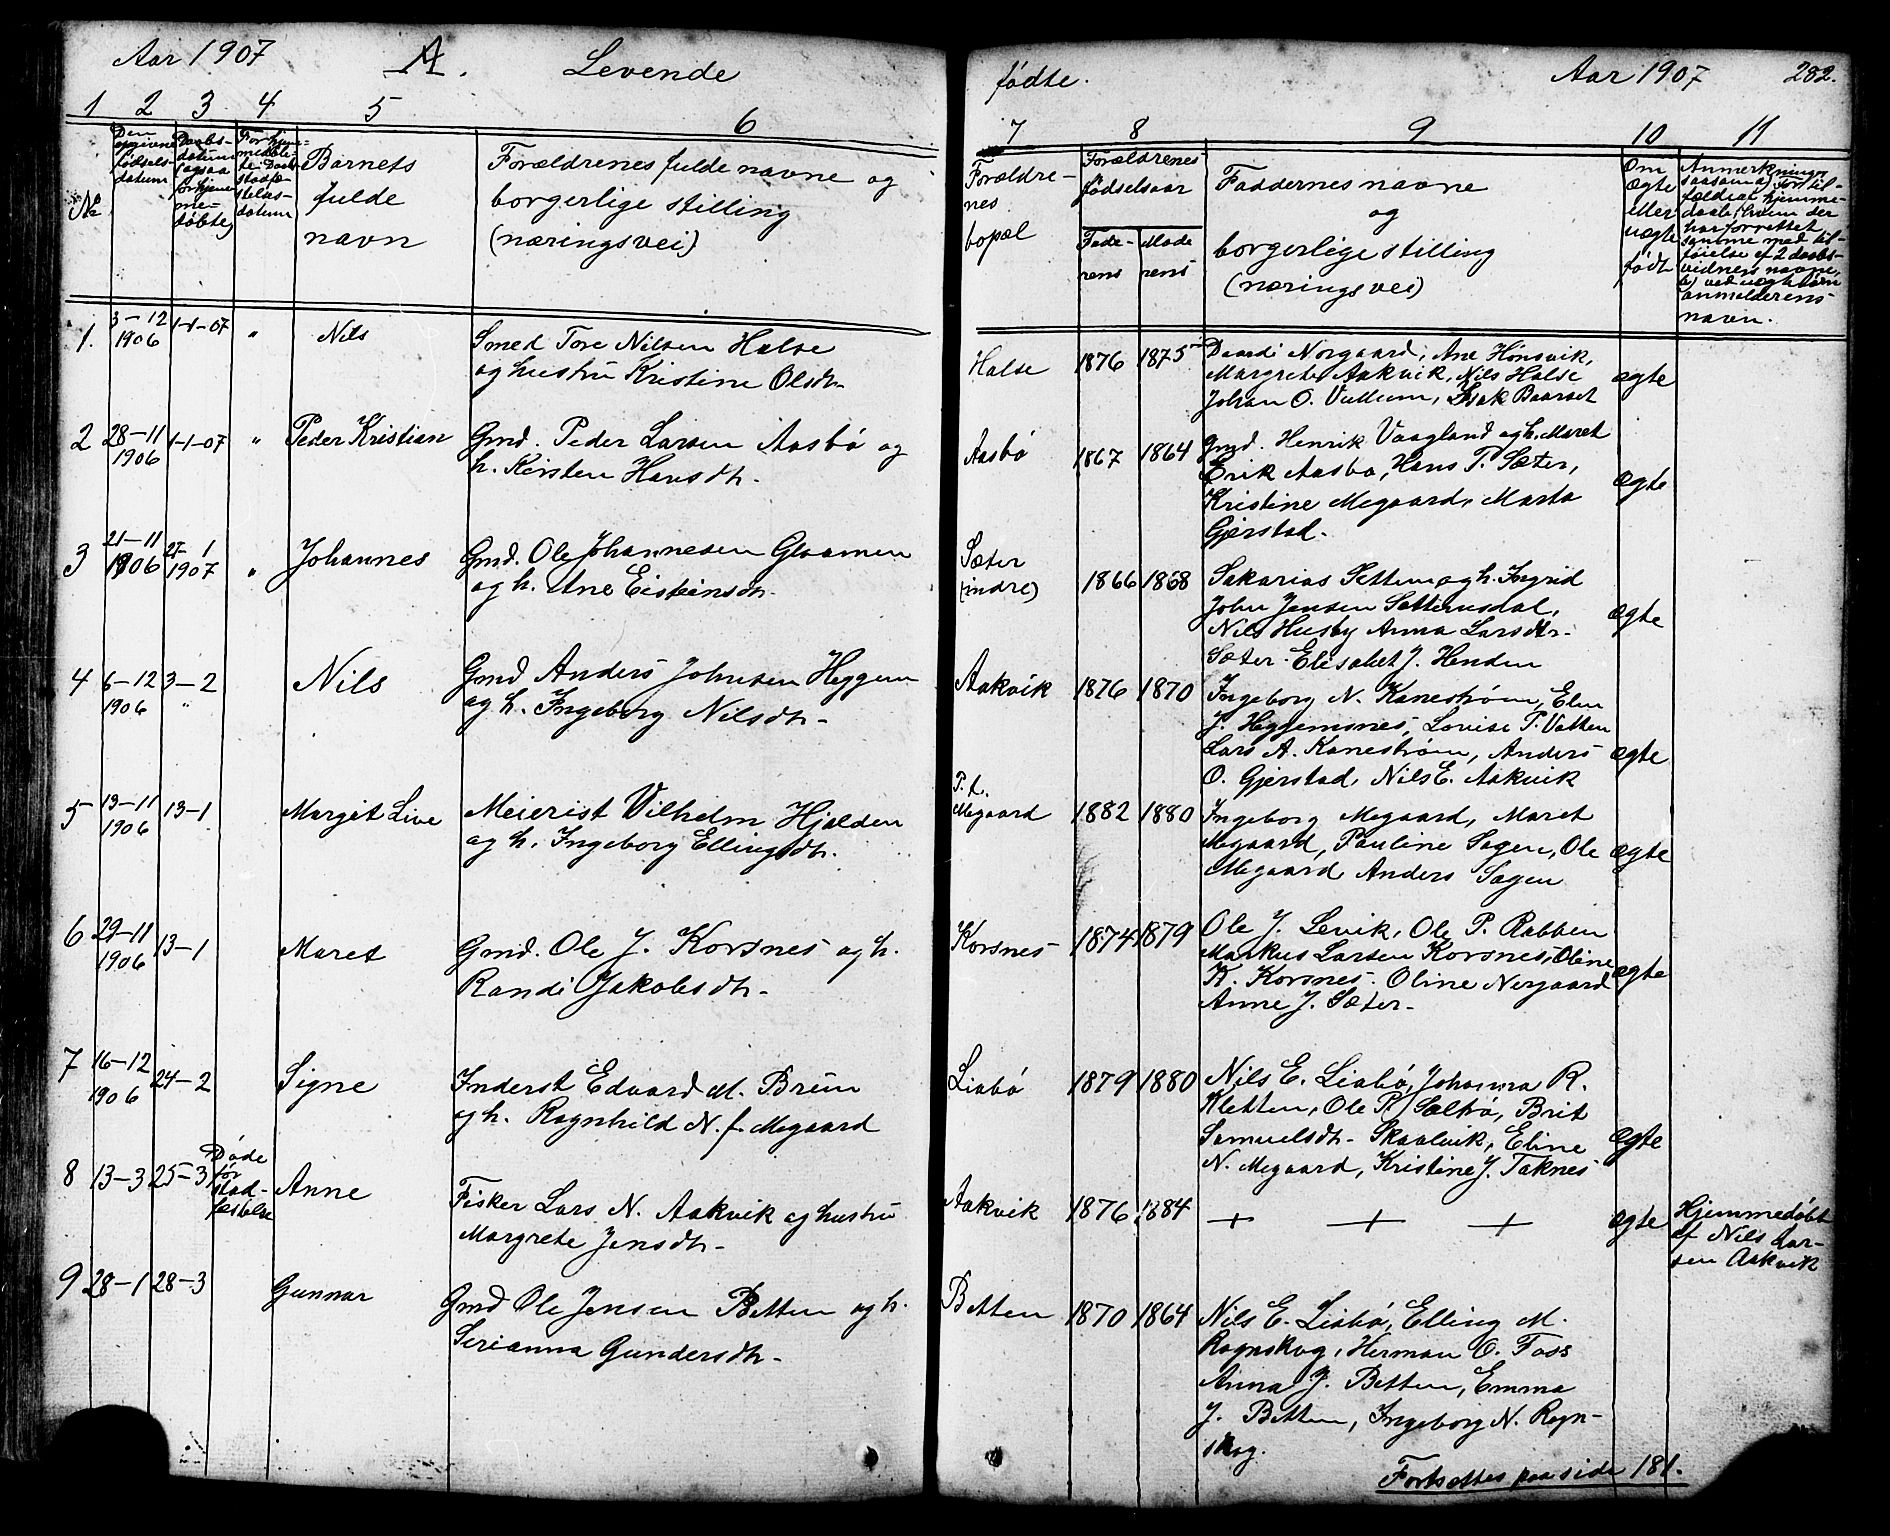 Aar 1907 A. Levende
1 2 3 4 5 6
№
Den
opgivne
fødsels-
datum
Daabs-
datum
(ogsaa
for hjem-
me-
døbte)
For hjem-
medøbte
datum
Barnets
fulde
navn
Forældrenes fulde navne og
borgerlige stilling
(næringsvei)
1. 3-12 1906 1-1-07 " Nils
Smed Tore Nilsen Halse
og hustru Kristine Olsdtr.
2 28-11 1906 1-1-07 " Peder Kristian
Gmd. Peder Larsen Aasbø og
h. Kirsten Hansdtr.
3 21-11 1906 27-1 1907 " Johannes
Gmd. Ole Johannesen Glaamen
og h. Ane Eisteinsdtr.
4 6-12 1906 3-2 " Nils
Gmd Anders Johnsen Heggem
og h. Ingeborg Nilsdtr.
5 13-11 1906 13-1 Margit Live
Meierist Vilhelm Hjelden
og h. Ingeborg Ellingsdtr.
6 29-11 1906 13-1 Maret
Gmd. Ole J. Korsnes og h.
Randi Jakobsdtr.
7 16-12 1906 24-2 Signe
Inderst Edvard M. Bruun
og h. Ragnhild N. f. Megaard
8 13-3 25-3 Døde før stad-festelse Anne
Fisker Lars N. Aakvik og hustru
Margrete Jensdtr.
9 28-1 28-3 Gunnar
Gmd Ole Jensen Betten og h.
Serianna Gundersdtr.
fødte. Aar 1907 282.
7 8 9 10 11
Forældre-
nes
bopæl
Forældrenes
fødselsaar
Fade-
rens
Mode
rens
Faddernes navne
og
borgerlige stilling
(næringsvei)
Om
ægte
eller
uægte
født
Anmerkninger
saasom a) for til-
fælde af hjemme-
daab, hvem der
har forrettet
samme med til-
føielse af 2 daabs-
vidners navne,
b) ved uægte børn
anmelderens
navn.
Halse 1876 1875 Daardi Norgaard, Ane Hønsvik,
Margrete Aakvik, Nils Halse
Johan O. Vullum, Isak Baarset
ægte
Aasbø 1867 1864 Gmd. Henrik Vaagland og h. Maret
Erik Aasbø, Hans P. Sæter,
Kristine Megaard, Marta
Gjerstad.
ægte
Sæter
(indre)
1866 1868 Sakarias Settem og h. Ingrid
John Jensen Settemsdal,
Nils Husby Anna Larsdtr.
Sæter. Elisabet J. Henden
ægte
Aakvik 1876 1870 Ingeborg N. Kanestrøm, Elen
J. Heggemsnes, Lovise P. Vatten
Lars A. Kanestrøm, Anders
O. Gjerstad, Nils E. Aakvik
ægte
P.t.
Megaard 1882 1880 Ingeborg Megaard, Maret
Megaard, Pauline Sagen, Ole
Megaard Anders Sagen
ægte
Korsnes 1874 1879 Ole J. Levik, Ole P. Rabben
Markus Larsen Korsnes, Oline
K. Korsnes. Oline Nergaard
Anne J. Sæter.
ægte
Liabø 1879 1880 Nils E. Liabø, Johanna R.
Kletten, Ole P. Sælbø, Brit
Samuelsdtr. Skaalvik, Eline
N. Megaard, Kristine J. Taknes
ægte
Aakvik 1876 1884 + + + ægte
Hjemmedøbt
af Nils Lar-
sen Aakvik
Betten 1870 1864 Nils E. Liabø, Elling M.
Rognskog, Herman O. Foss
Anna J. Betten, Emma
J. Betten, Ingeborg N. Rogn-
skog.
Fortsættes paa side 181.